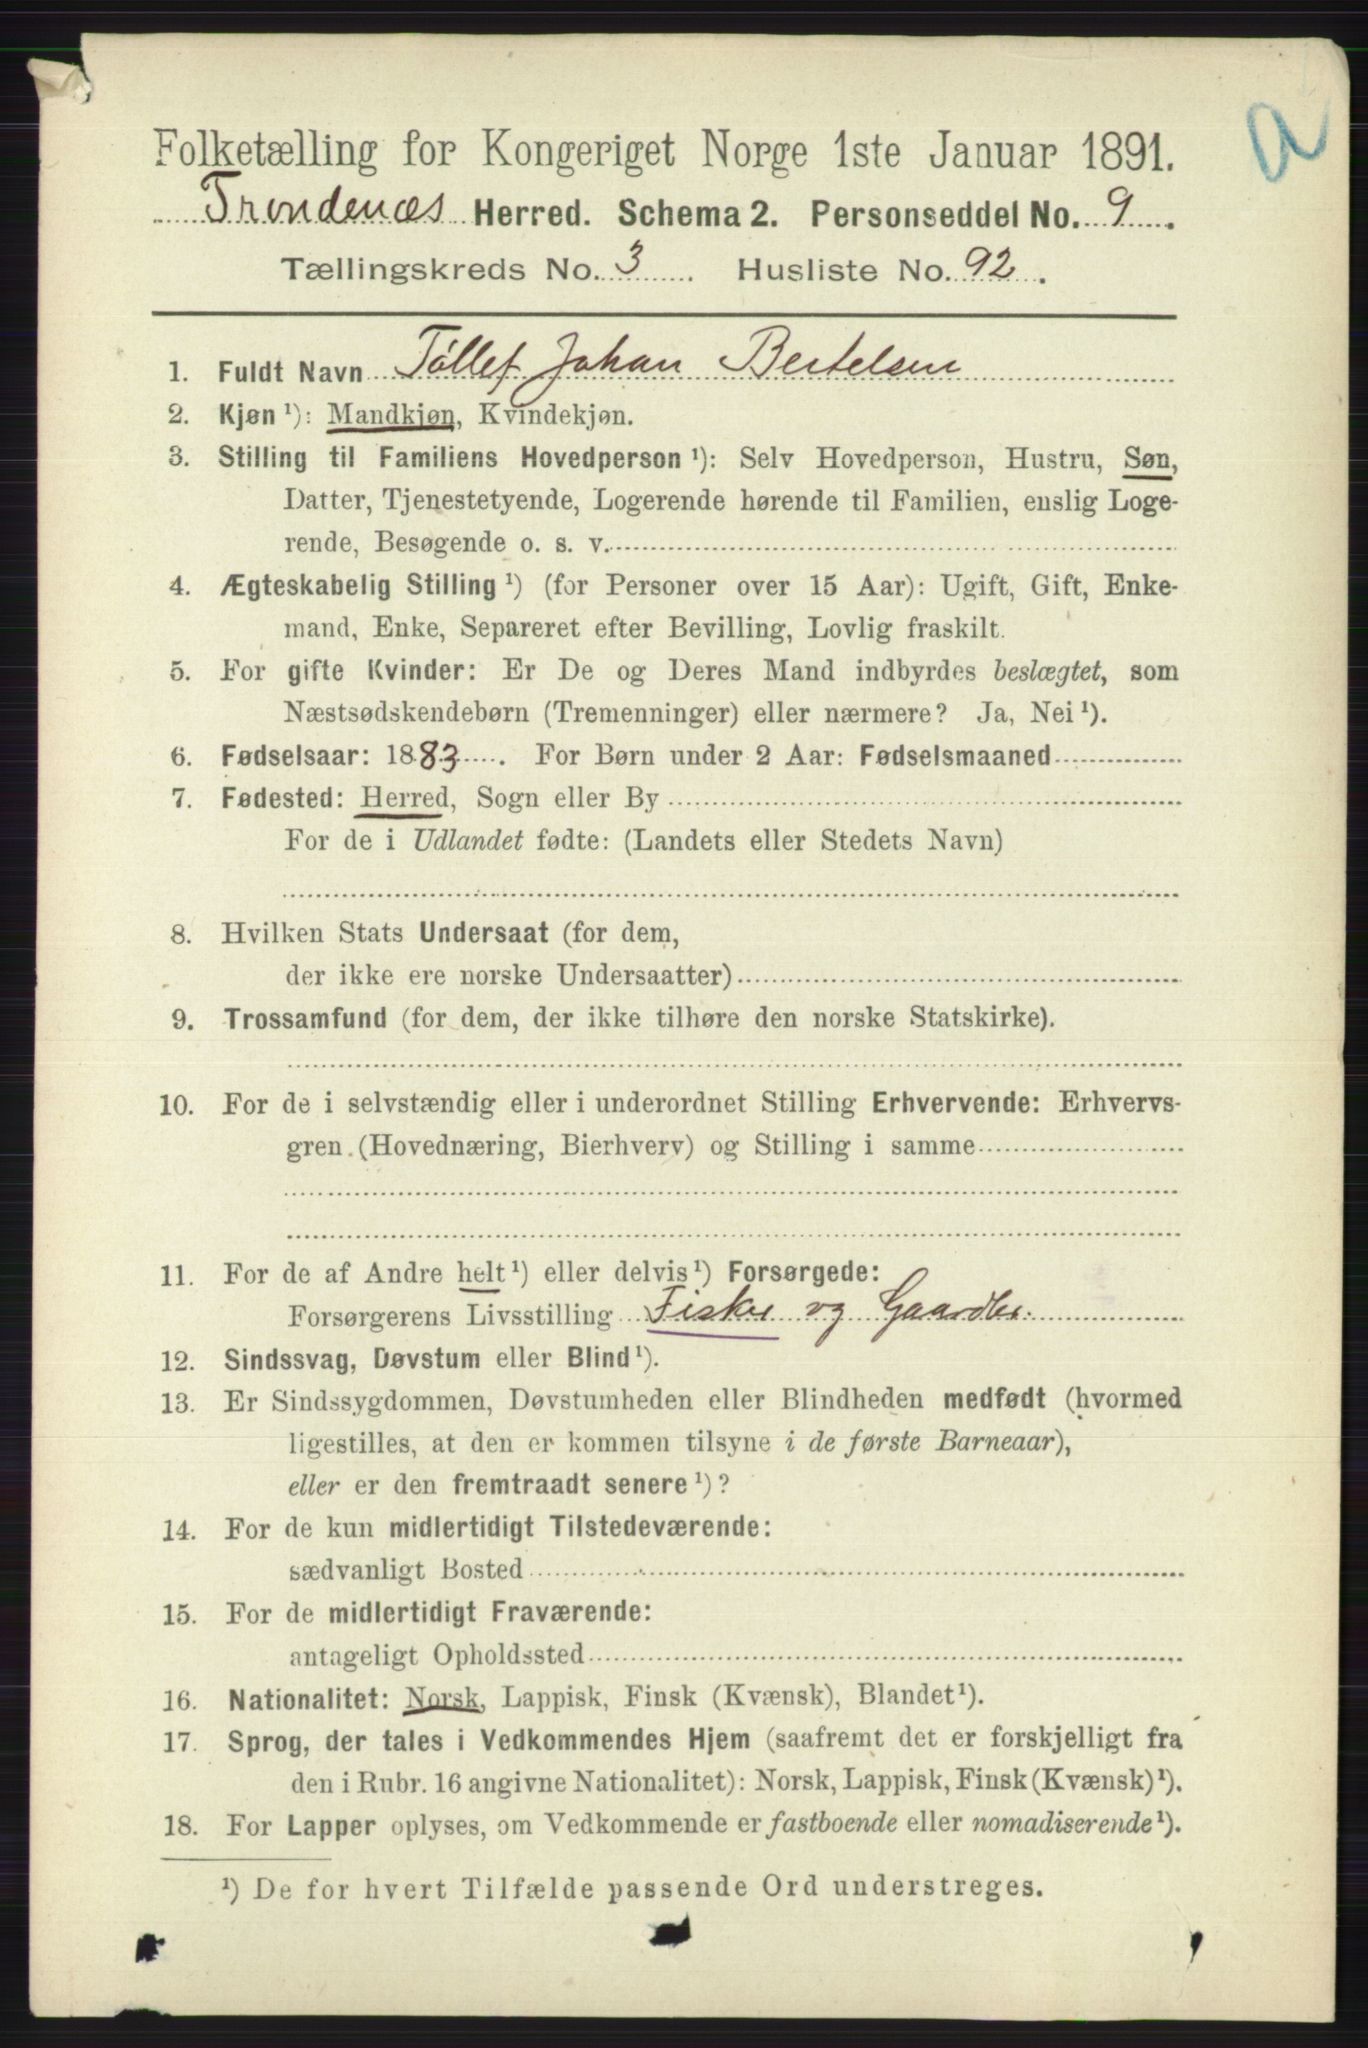 a
Folketælling for Kongeriget Norge 1ste Januar 1891.
Trondenæs Herred. Schema 2. Personseddel No. 9.
Tællingskreds No. 3. Husliste No. 92.
1. Fuldt Navn Tollef Johan Bertelsen
2. Kjøn ¹): Mandkjøn, Kvindekjøn.
3. Stilling til Familiens Hovedperson ¹): Selv Hovedperson, Hustru, Søn,
Datter, Tjenestetyende, Logerende hørende til Familien, enslig Loge-
rende, Besøgende o. s. v.
4. Ægteskabelig Stilling ¹) (for Personer over 15 Aar): Ugift, Gift, Enke-
mand, Enke, Separeret efter Bevilling, Lovlig fraskilt.
5. For gifte Kvinder: Er De og Deres Mand indbyrdes beslægtet, som
Næstsødskendebørn (Tremenninger) eller nærmere? Ja, Nei ¹).
6. Fødselsaar: 1883. For Børn under 2 Aar: Fødselsmaaned
7. Fødested: Herred, Sogn eller By
For de i Udlandet fødte: (Landets eller Stedets Navn)
8. Hvilken Stats Undersaat (for dem,
der ikke ere norske Undersaatter)
9. Trossamfund (for dem, der ikke tilhøre den norske Statskirke).
10. For de i selvstændig eller i underordnet Stilling Erhvervende: Erhvervs-
gren (Hovednæring, Bierhverv) og Stilling i samme
11. For de af Andre helt ¹) eller delvis ¹) Forsørgede:
Forsørgerens Livsstilling Fisker og Gaardbr.
12. Sindssvag, Døvstum eller Blind ¹).
13. Er Sindssygdommen, Døvstumheden eller Blindheden medfødt (hvormed
ligestilles, at den er kommen tilsyne i de første Barneaar),
eller er den fremtraadt senere ¹)?
14. For de kun midlertidigt Tilstedeværende:
sædvanligt Bosted
15. For de midlertidigt Fraværende:
antageligt Opholdssted
16. Nationalitet: Norsk, Lappisk, Finsk (Kvænsk), Blandet ¹).
17. Sprog, der tales i Vedkommendes Hjem (saafremt det er forskjelligt fra
den i Rubr. 16 angivne Nationalitet): Norsk, Lappisk, Finsk (Kvænsk) ¹).
18. For Lapper oplyses, om Vedkommende er fastboende eller nomadiserende ¹).
¹) De for hvert Tilfælde passende Ord understreges.